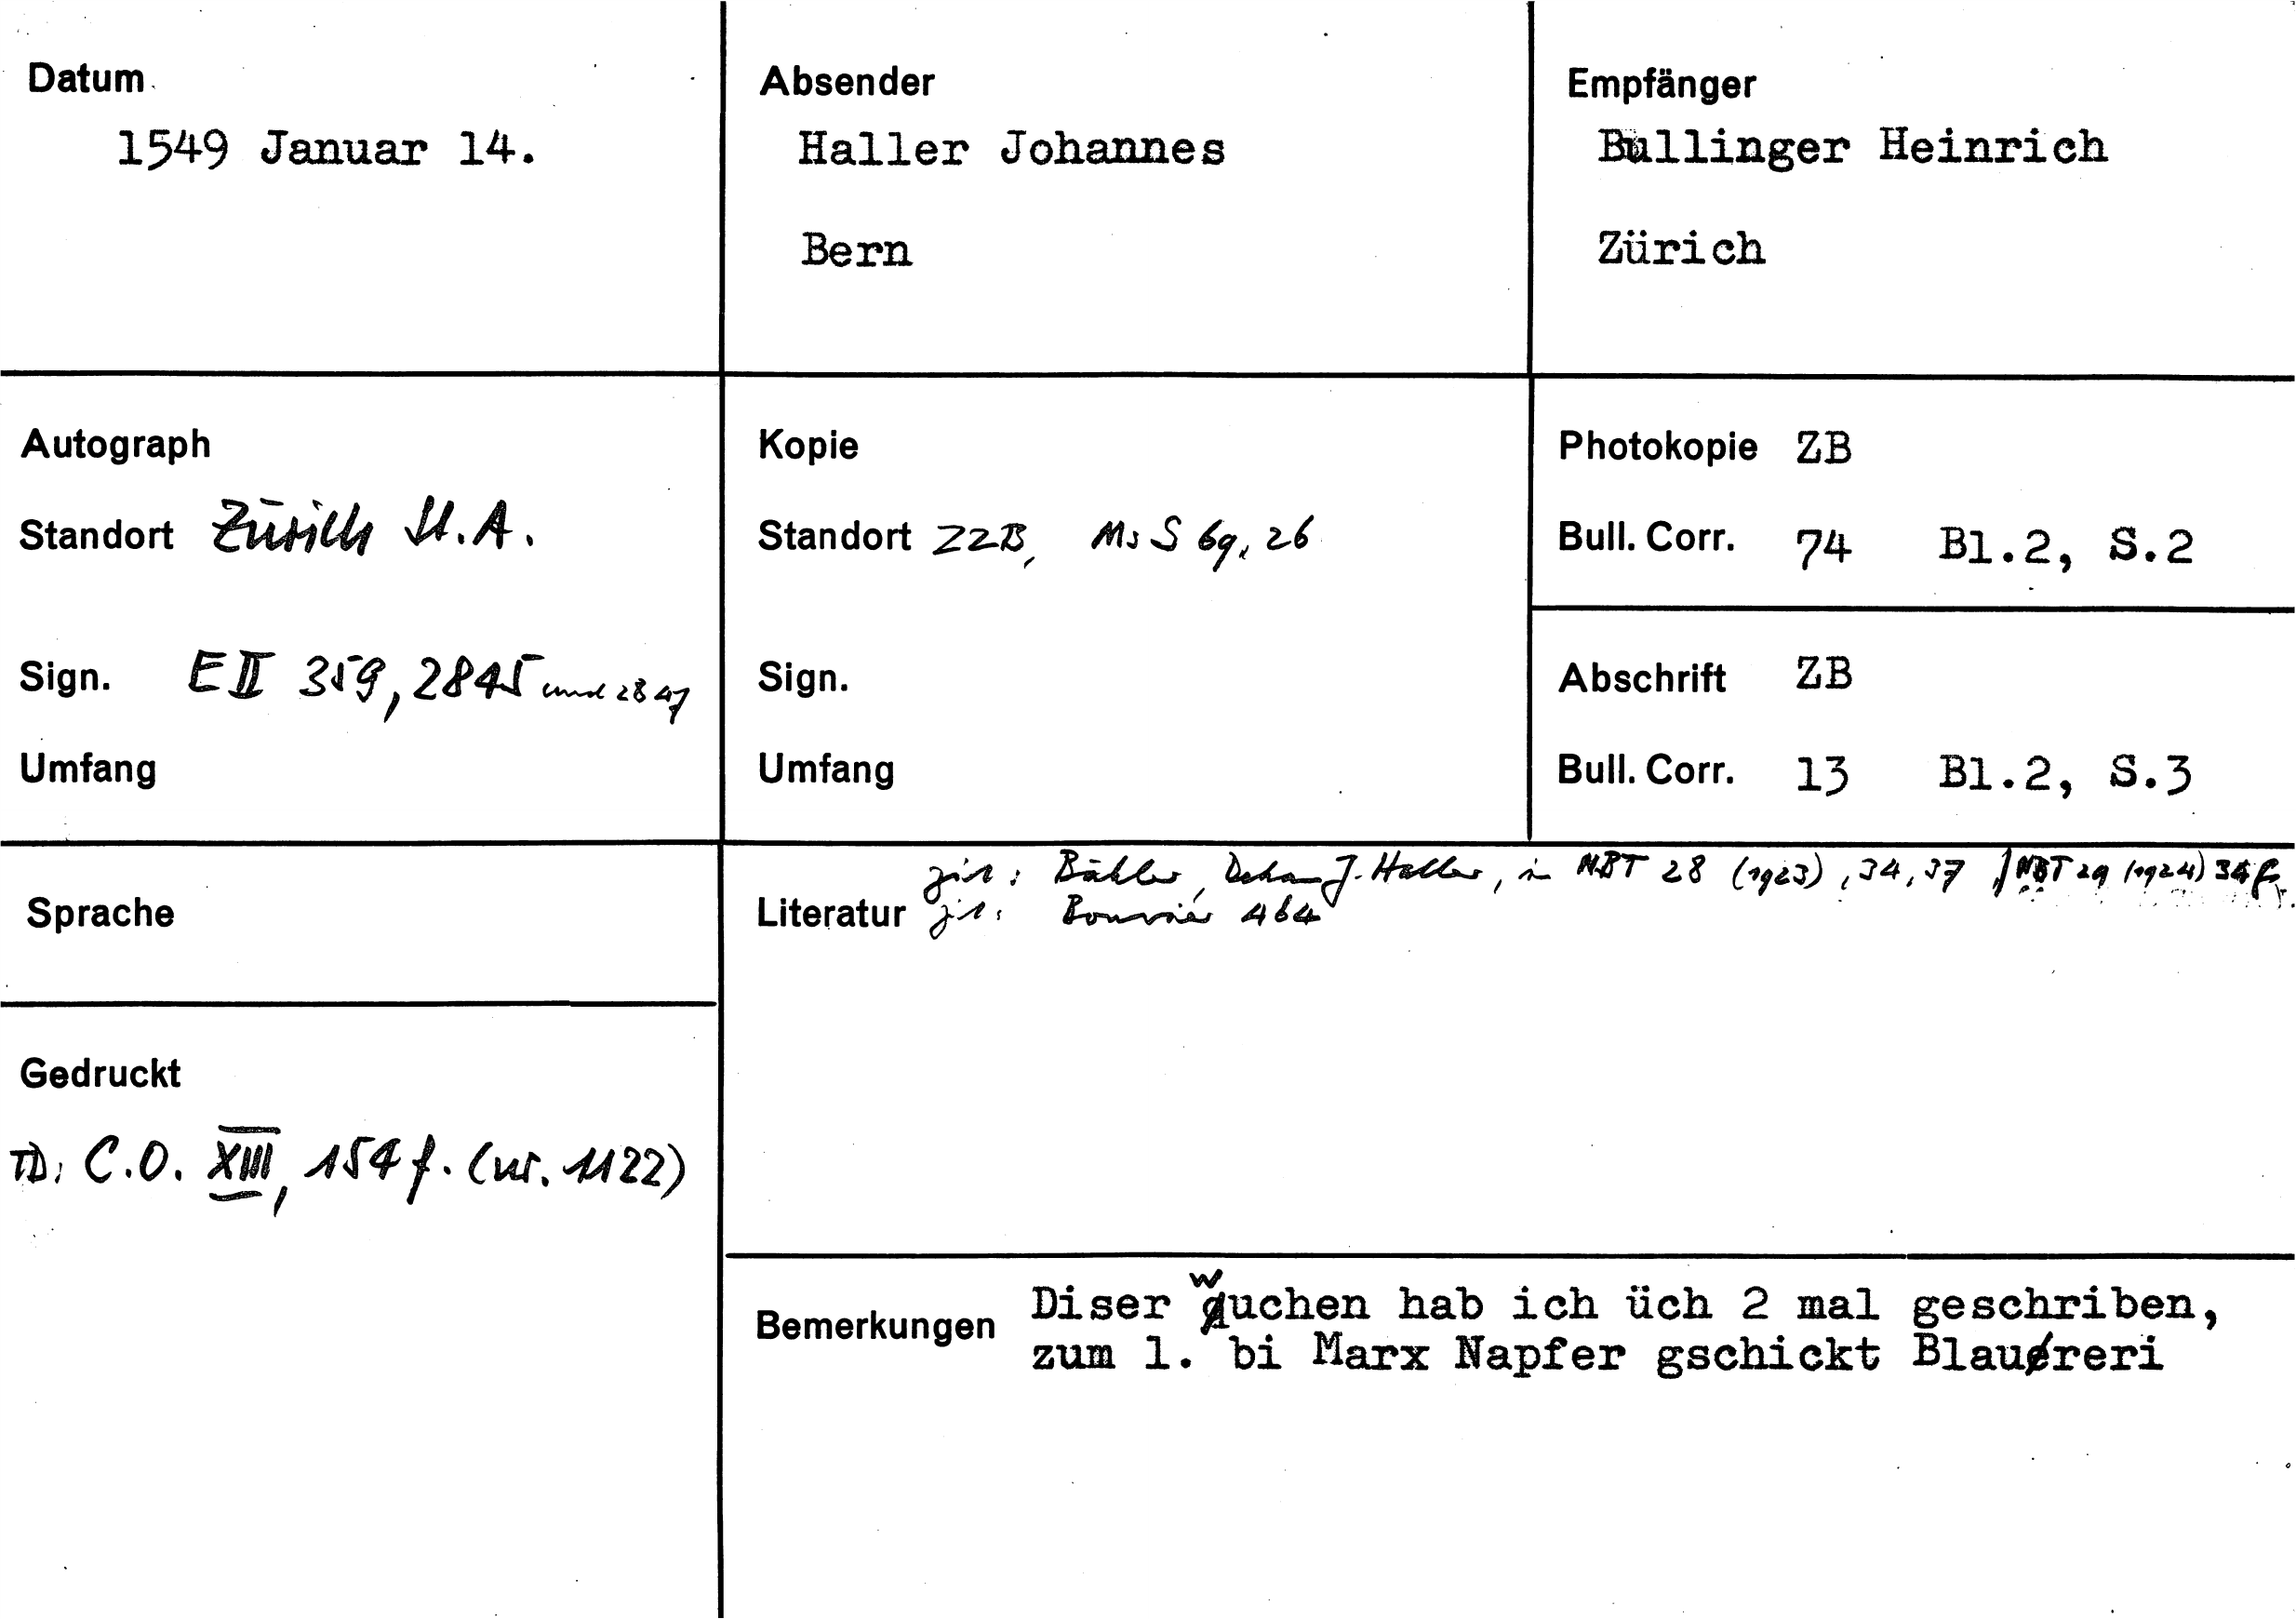 Datum
1549 Januar 14.
Absender
Haller Johannes
Bern
Empfänger
Bullinger Heinrich
Zürich
Autograph
Standort Zürich St.A.
Sign. E II 359, 2845 und 2847
Umfang
Kopie
Standort ZZB, Ms S 69, 26
Sign.
Umfang
Photokopie ZB
Bull. Corr. 74 Bl.2, S.2
Abschrift ZB
Bull. Corr. 13 Bl.2, S.3
Sprache
Gedruckt
TD: C.O. XIII, 154 f. (nr. 1122)
zit: Bähler, Dekan J. Haller, in NBT 28 (1923), 34, 37 / NBT 29 (1924) 34 f.
Literatur zit: Bouvier 464
Bemerkungen Diser wuchen hab ich üch 2 mal geschriben,
zum 1. bi Marx Napfer gschickt Blaureri